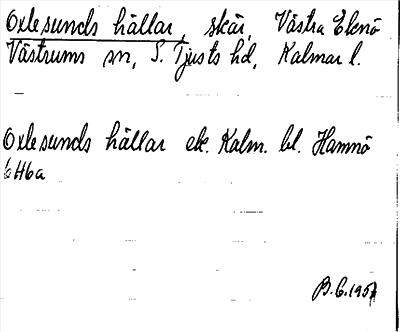 Oxlesunds hällar, skär, Västra Eknö
Västrums sn, S. Tjusts hd, Kalmar l.
Oxlesunds hällar ek. Kalm. bl. Hamnö
6H6a
B.C.1957